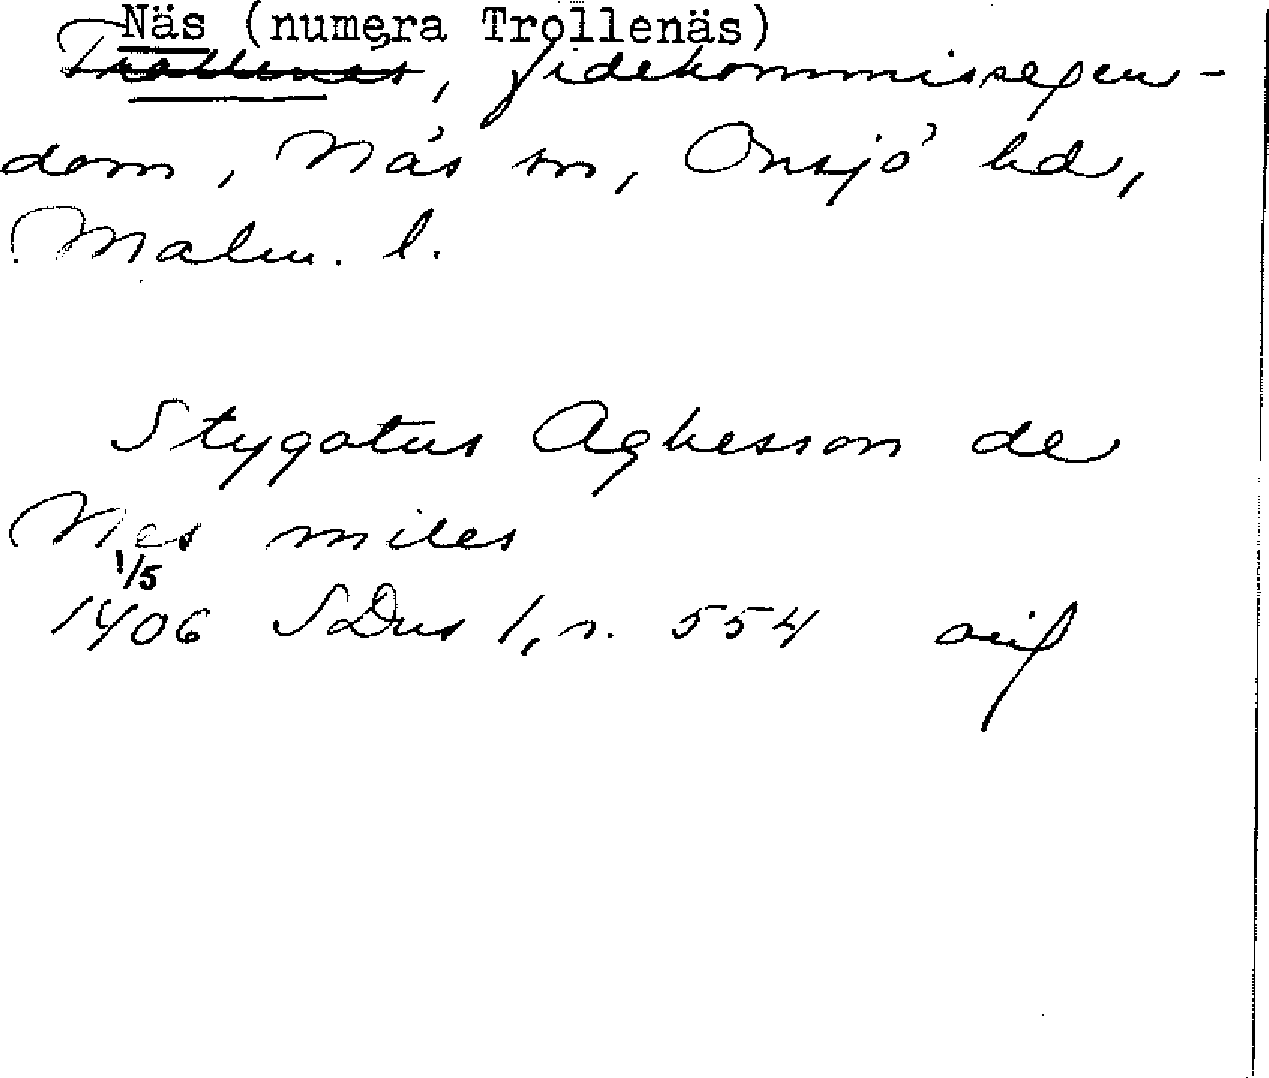 Näs (numera Trollenäs)
Trollenäs, fidekommissegen-
dom, Näs sn, Onsjö hd,
Malm. l.
Stygotus Aghesson de
Nes miles
1/5
1406 SDns 1, s. 554 orig